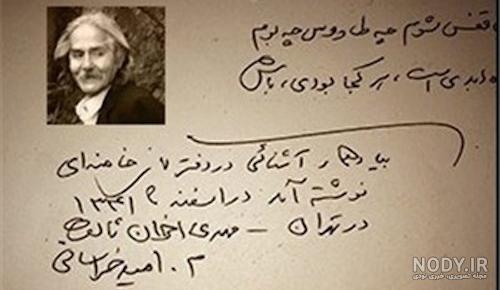 قفس شوم چه طاووس چه بوم
ابدی است، هر کجا بودی، باش
بیادگار آشنائی در دفتر خامنه‌ای
نوشته آمد در اسفند ۱۳۴۱
در تهران – مهدی اخوان ثالث
م. امید خراسانی
NODY.IR
مجله تصویری، خبری نودی